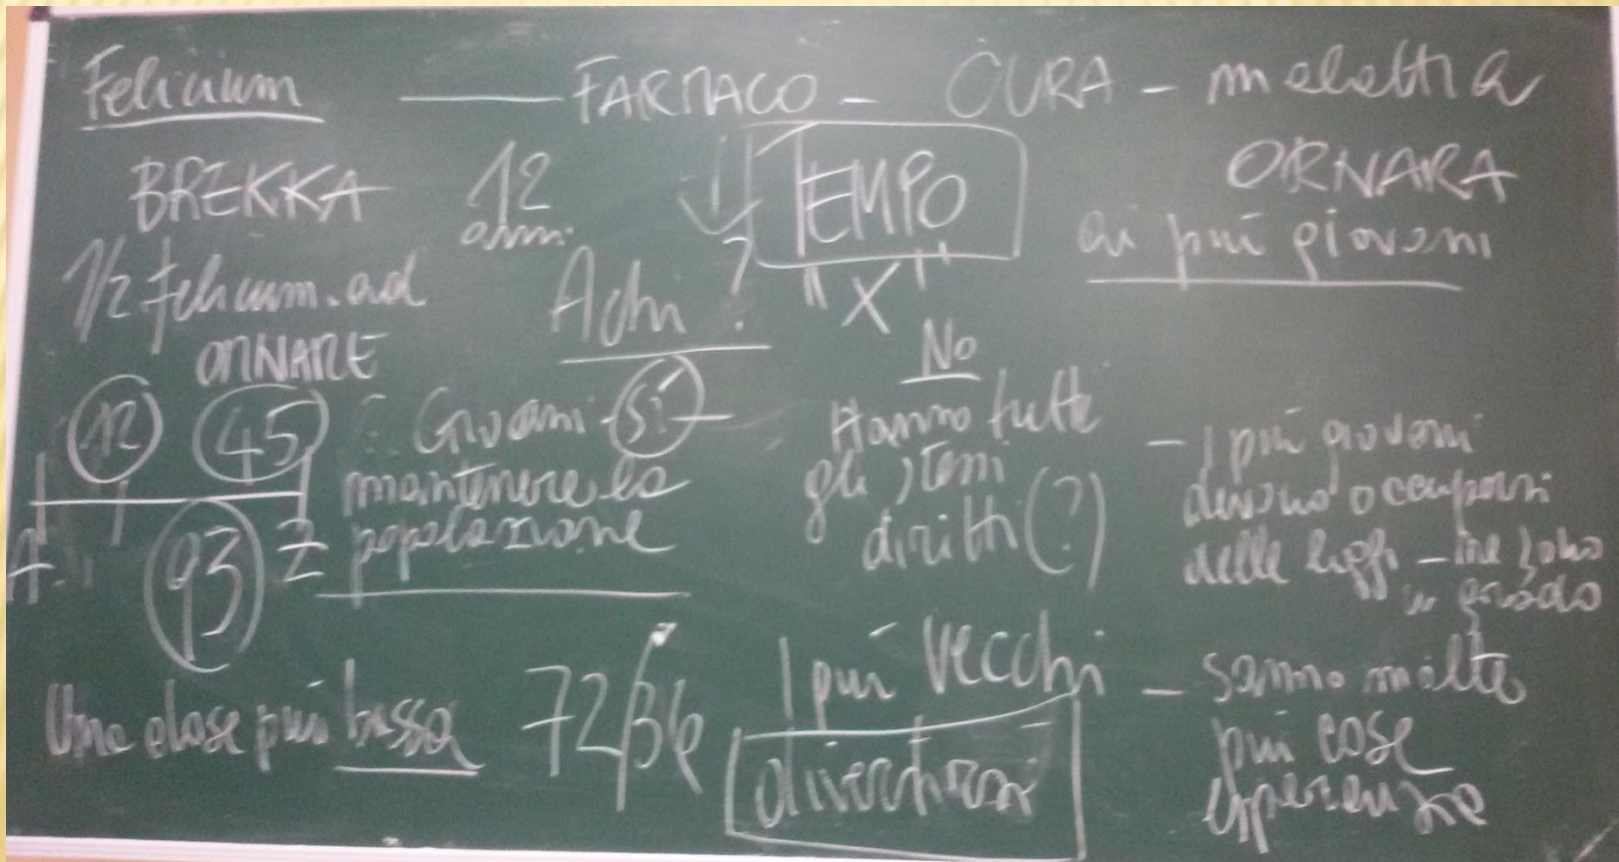 Felicium — FARMACO - CURA - malattia
BREKKA 12 anni TEMPO ORNARA
ai più giovani
1/2 felicium ad ORNARE
A chi? "X"
No
12 45 Giovani Sì
mantenere la popolazione
93
Hanno tutti gli stessi diritti (?)
- I più giovani
devono occuparsi
delle leggi - ne sono
in grado
Una dose più bassa 72/36
I più vecchi - sanno molte
più cose
esperienze
divertirsi